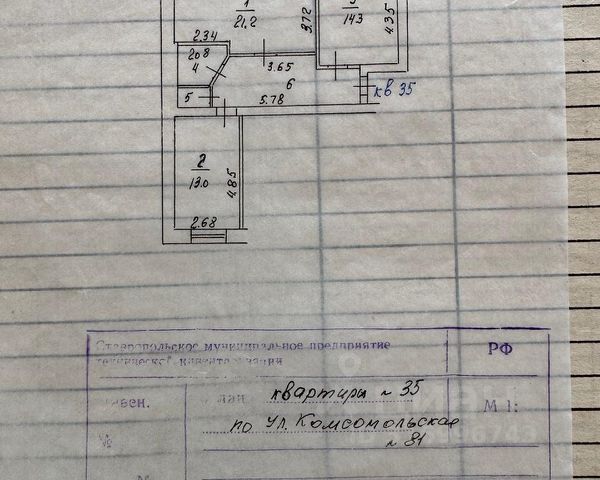 1
21,2
3,72
14,3
4,35
2.34
2.08
4
3.65
6
кв 35
5
5.78
2
13.0
4.85
2.68
Ставропольское муниципальное предприятие
технической инвентаризации
РФ
План квартиры № 35
М 1:
по ул. Комсомольская
№ 81
№